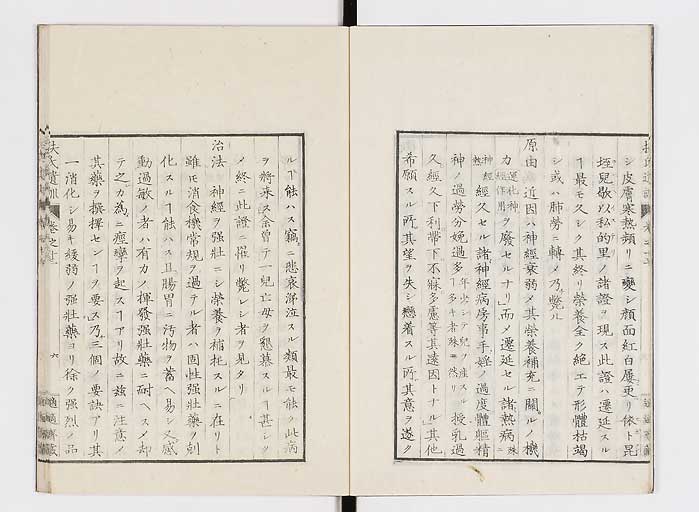 シ皮膚寒熱頻リニ變シ顔面紅白屢更リ依ト昆
垤兒歇以私的里ノ諸證ヲ現ス此證ハ遷延スル
ヿ最モ久シク其終リ榮養全ク絶エテ形體枯竭
シ或ハ肺勞ニ轉メ乃斃ル
原由 近因ハ神經衰弱メ其榮養補充ニ關ルノ機
力運化神經作用ヲ廢セルナリ而メ遷延セル諸熱病ニ殊
神經熱經久セル諸神經病房事手婬ノ過度體軀精
神ノ過勞分娩過多年少シテ兒ヲ産スルヿ多キ者殊ニ然リ授乳過
久經久下利帶下不寐多慮等其遠因トナル其他
希願スル所其望ヲ失シ戀着スル所其意ヲ遂ク
ルヿ能ハス竊ニ悲哀涕泣スル類最モ能ク此病
ヲ將來ス余曽テ一兒亡母ヲ懇慕スルヿ甚シク
メ終ニ此證ニ罹リ斃レシ者ヲ見タリ
治法 神經ヲ强壯ニシ榮養ヲ補托スルニ在リト
雖モ消食機常規ヲ過テル者ハ固性强壯藥ヲ剋
化スルヿ能ハス且腸胃ニ汚物ヲ蓄ヘ易シ又感
動過敏ノ者ハ有力ノ揮發强壯藥ニ耐ヘスメ却
テ之カ為ニ痙攣ヲ起スヿアリ故ニ玆ニ注意メ
其藥ヲ撰擇センヿヲ要ス乃三個ノ要訣アリ其
一消化シ易キ緩弱ノ强壯藥ヨリ徐々强烈ノ品
扶氏遺訓 卷之十
六
適適齋藏